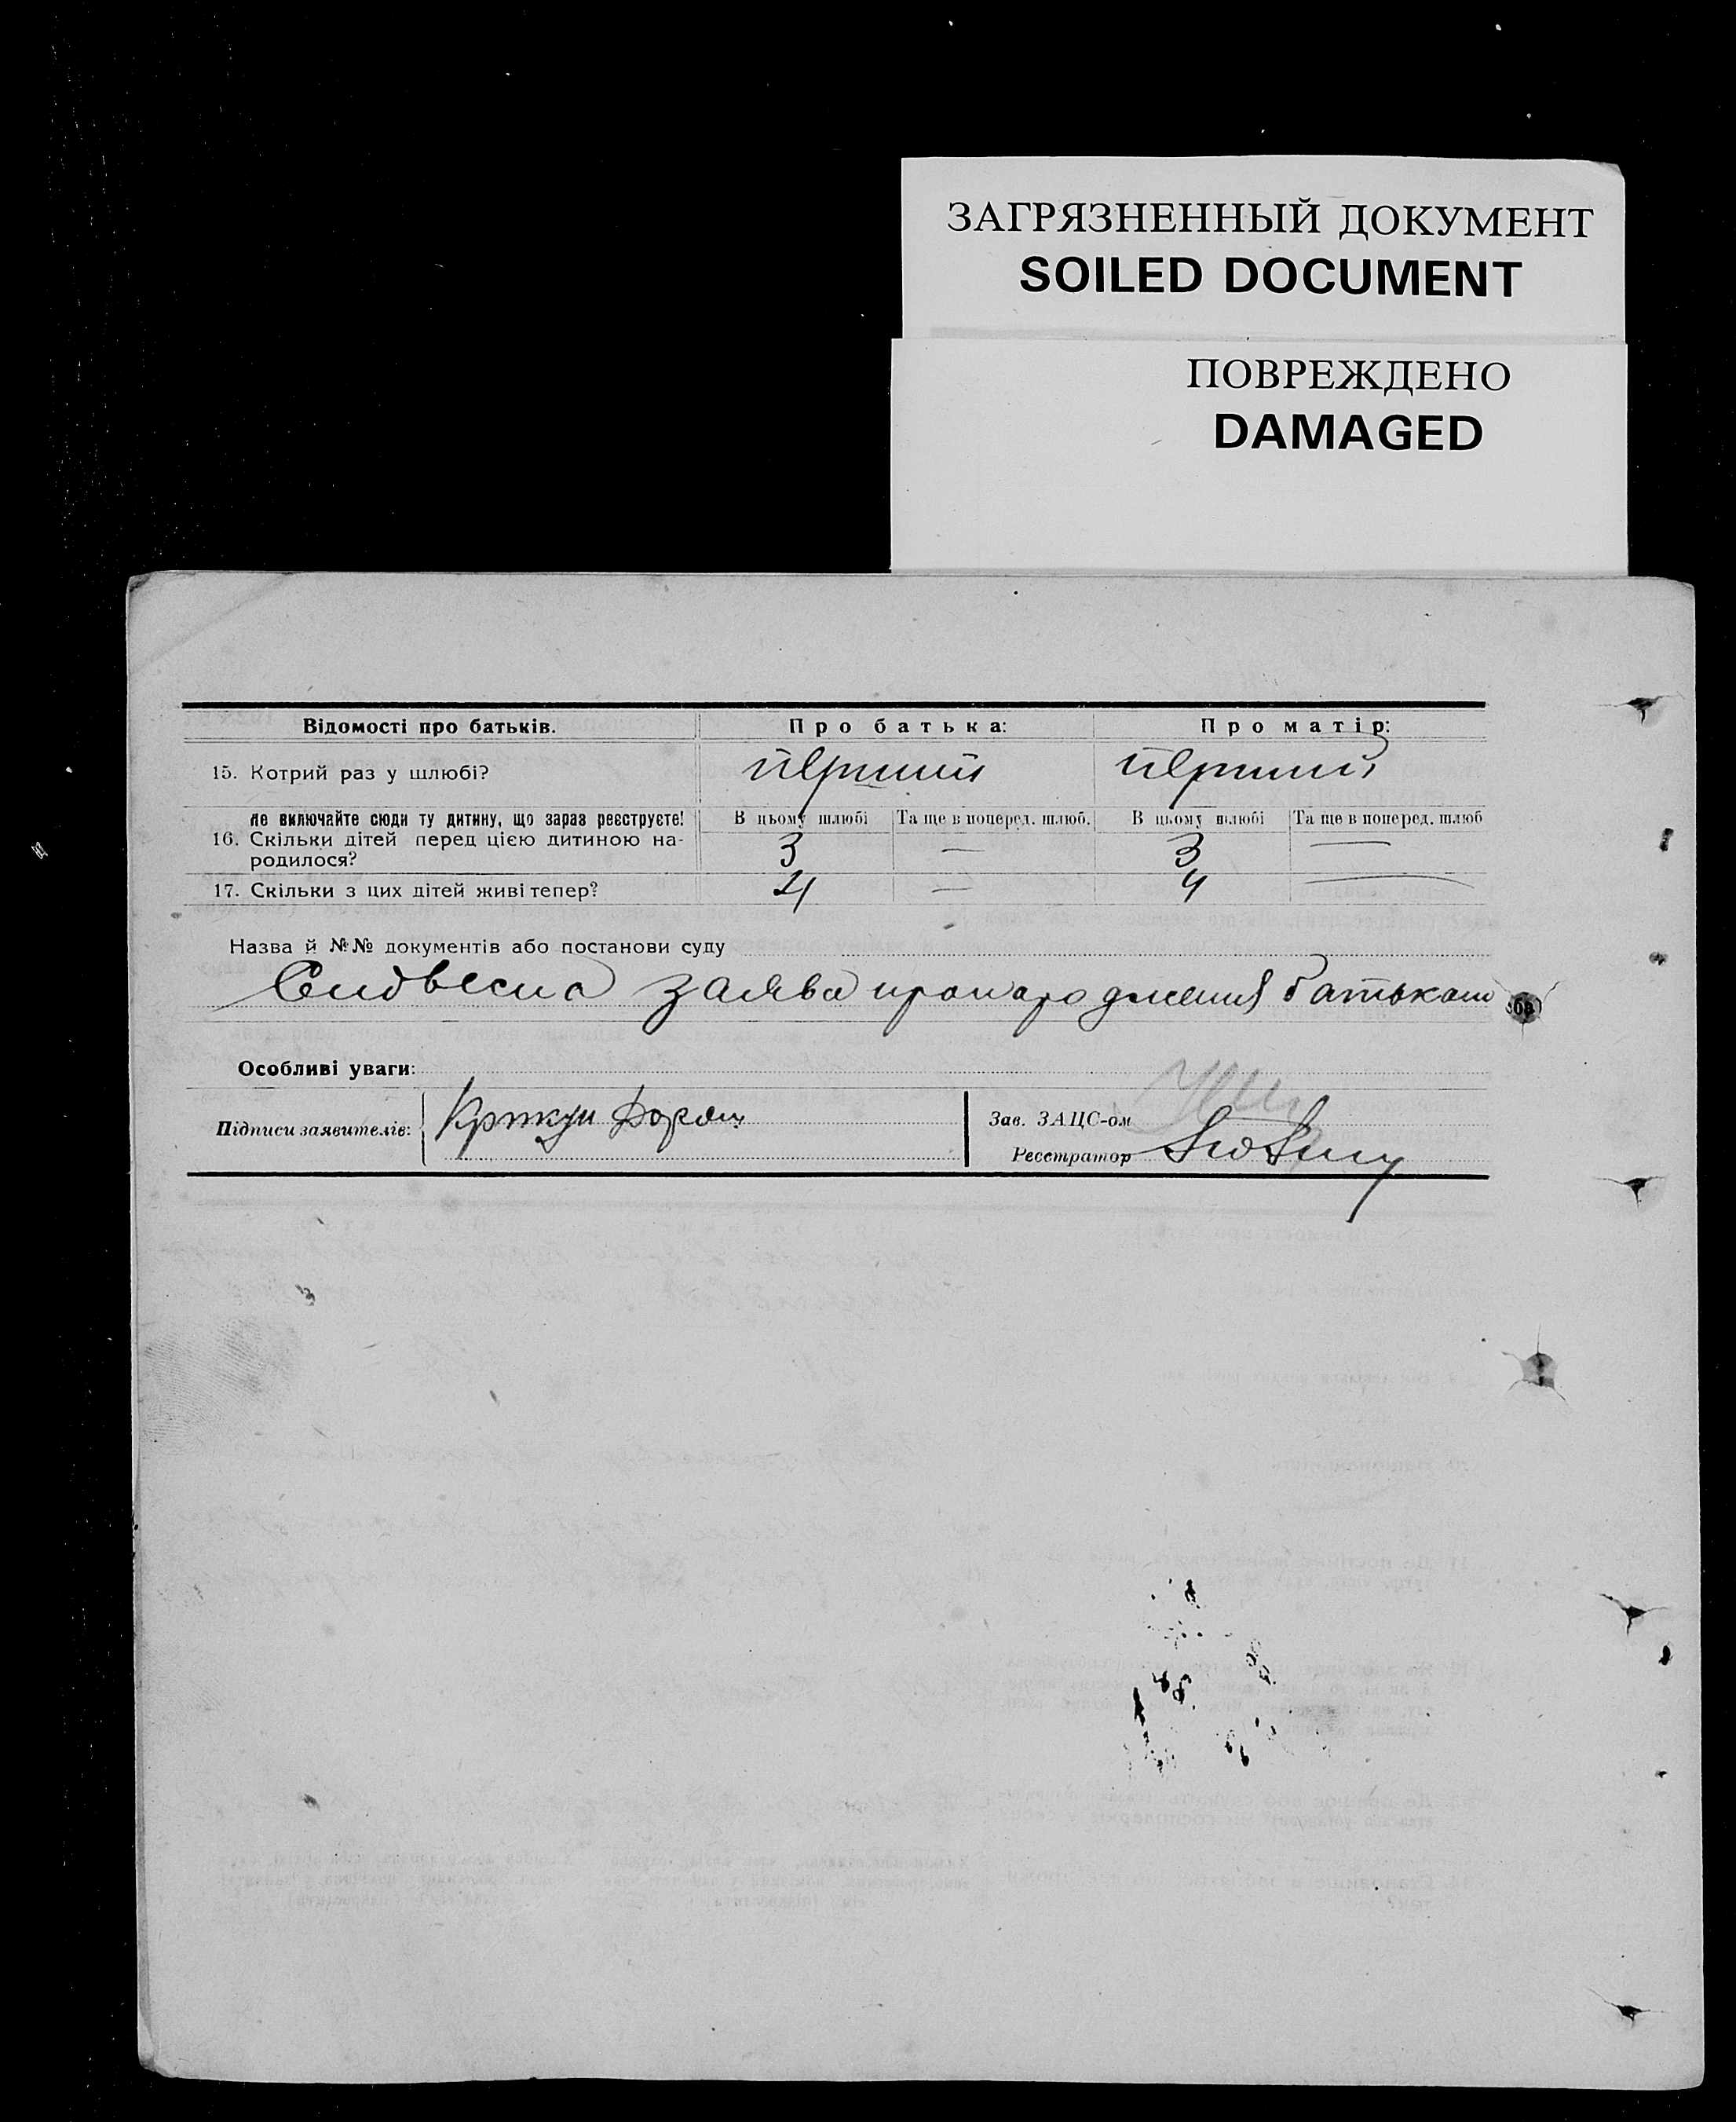 ЗАГРЯЗНЕННЫЙ ДОКУМЕНТ
SOILED DOCUMENT
ПОВРЕЖДЕНО
DAMAGED
Відомості про батьків. Про батька: Про матір:
15. Котрий раз у шлюбі? перший перший
не включайте сюди ту дитину, що зараз реєструєте! В цьому шлюбі Та ще в поперед. шлюб. В цьому шлюбі Та ще в поперед. шлюб
16. Скільки дітей перед цією дитиною на-
родилося? 3 — 3 —
17. Скільки з цих дітей живі тепер? 4 — 4 —
Назва й №№ документів або постанови суду
заява про народження батьком
Особливі уваги:
Підписи заявителів:
Зав. ЗАЦС-ом
Реєстратор